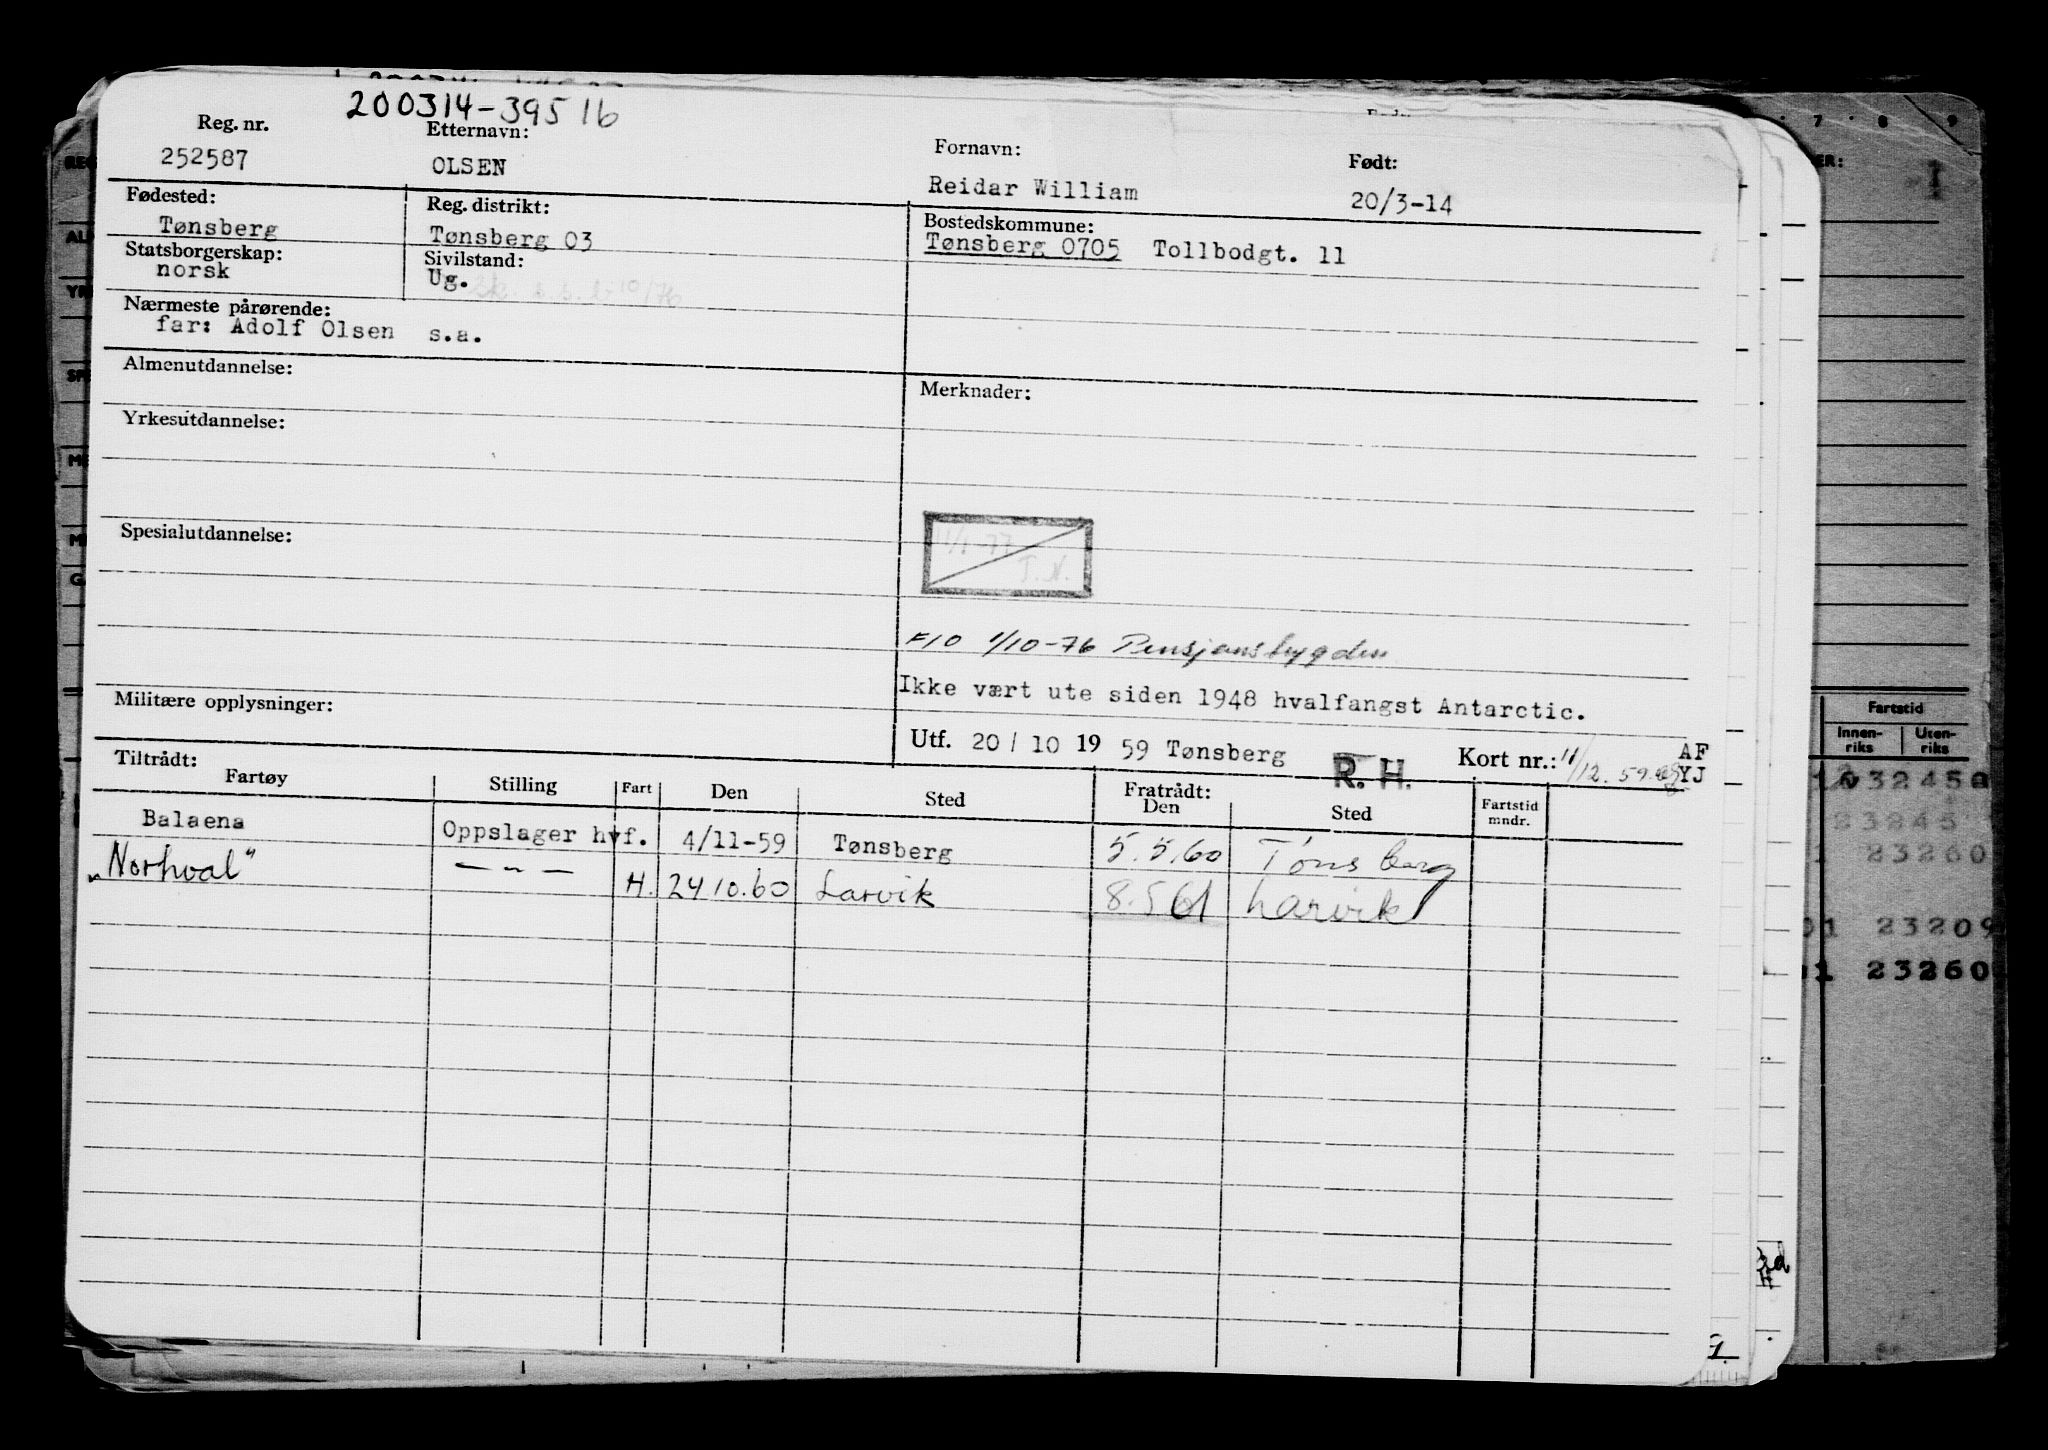 200314-39516
Reg. nr. Etternavn: Fornavn: Født:
252587 OLSEN Reidar William 20/3-14
Fødested: Reg. distrikt: Bostedskommune:
Tønsberg Tønsberg 03 Tønsberg 0705 Tollbodgt. 11
Statsborgerskap: Sivilstand:
norsk Ug.
Nærmeste pårørende:
far: Adolf Olsen s.a.
Almenutdannelse: Merknader:
Yrkesutdannelse:
Spesialutdannelse:
11/1-77
T.N.
F10 1/10-76 Pensjonsbygden
Ikke vært ute siden 1948 hvalfangst Antarctic.
Militære opplysninger:
Utf. 20/10 1959 Tønsberg R. H. Kort nr.: AF
YJ
Tiltrådt: Fratrådt:
Fartøy Stilling Fart Den Sted Den Sted Fartstid mndr.
Balaena Oppslager hvf. 4/11-59 Tønsberg 5.5.60 Tønsberg
"Norhval" — " — H. 24 10.60 Larvik 8.5 61 Larvik
7 8 9
ER:
I
Fartstid
Innen-riks Uten-riks
23245
23260
01 23209
01 23260